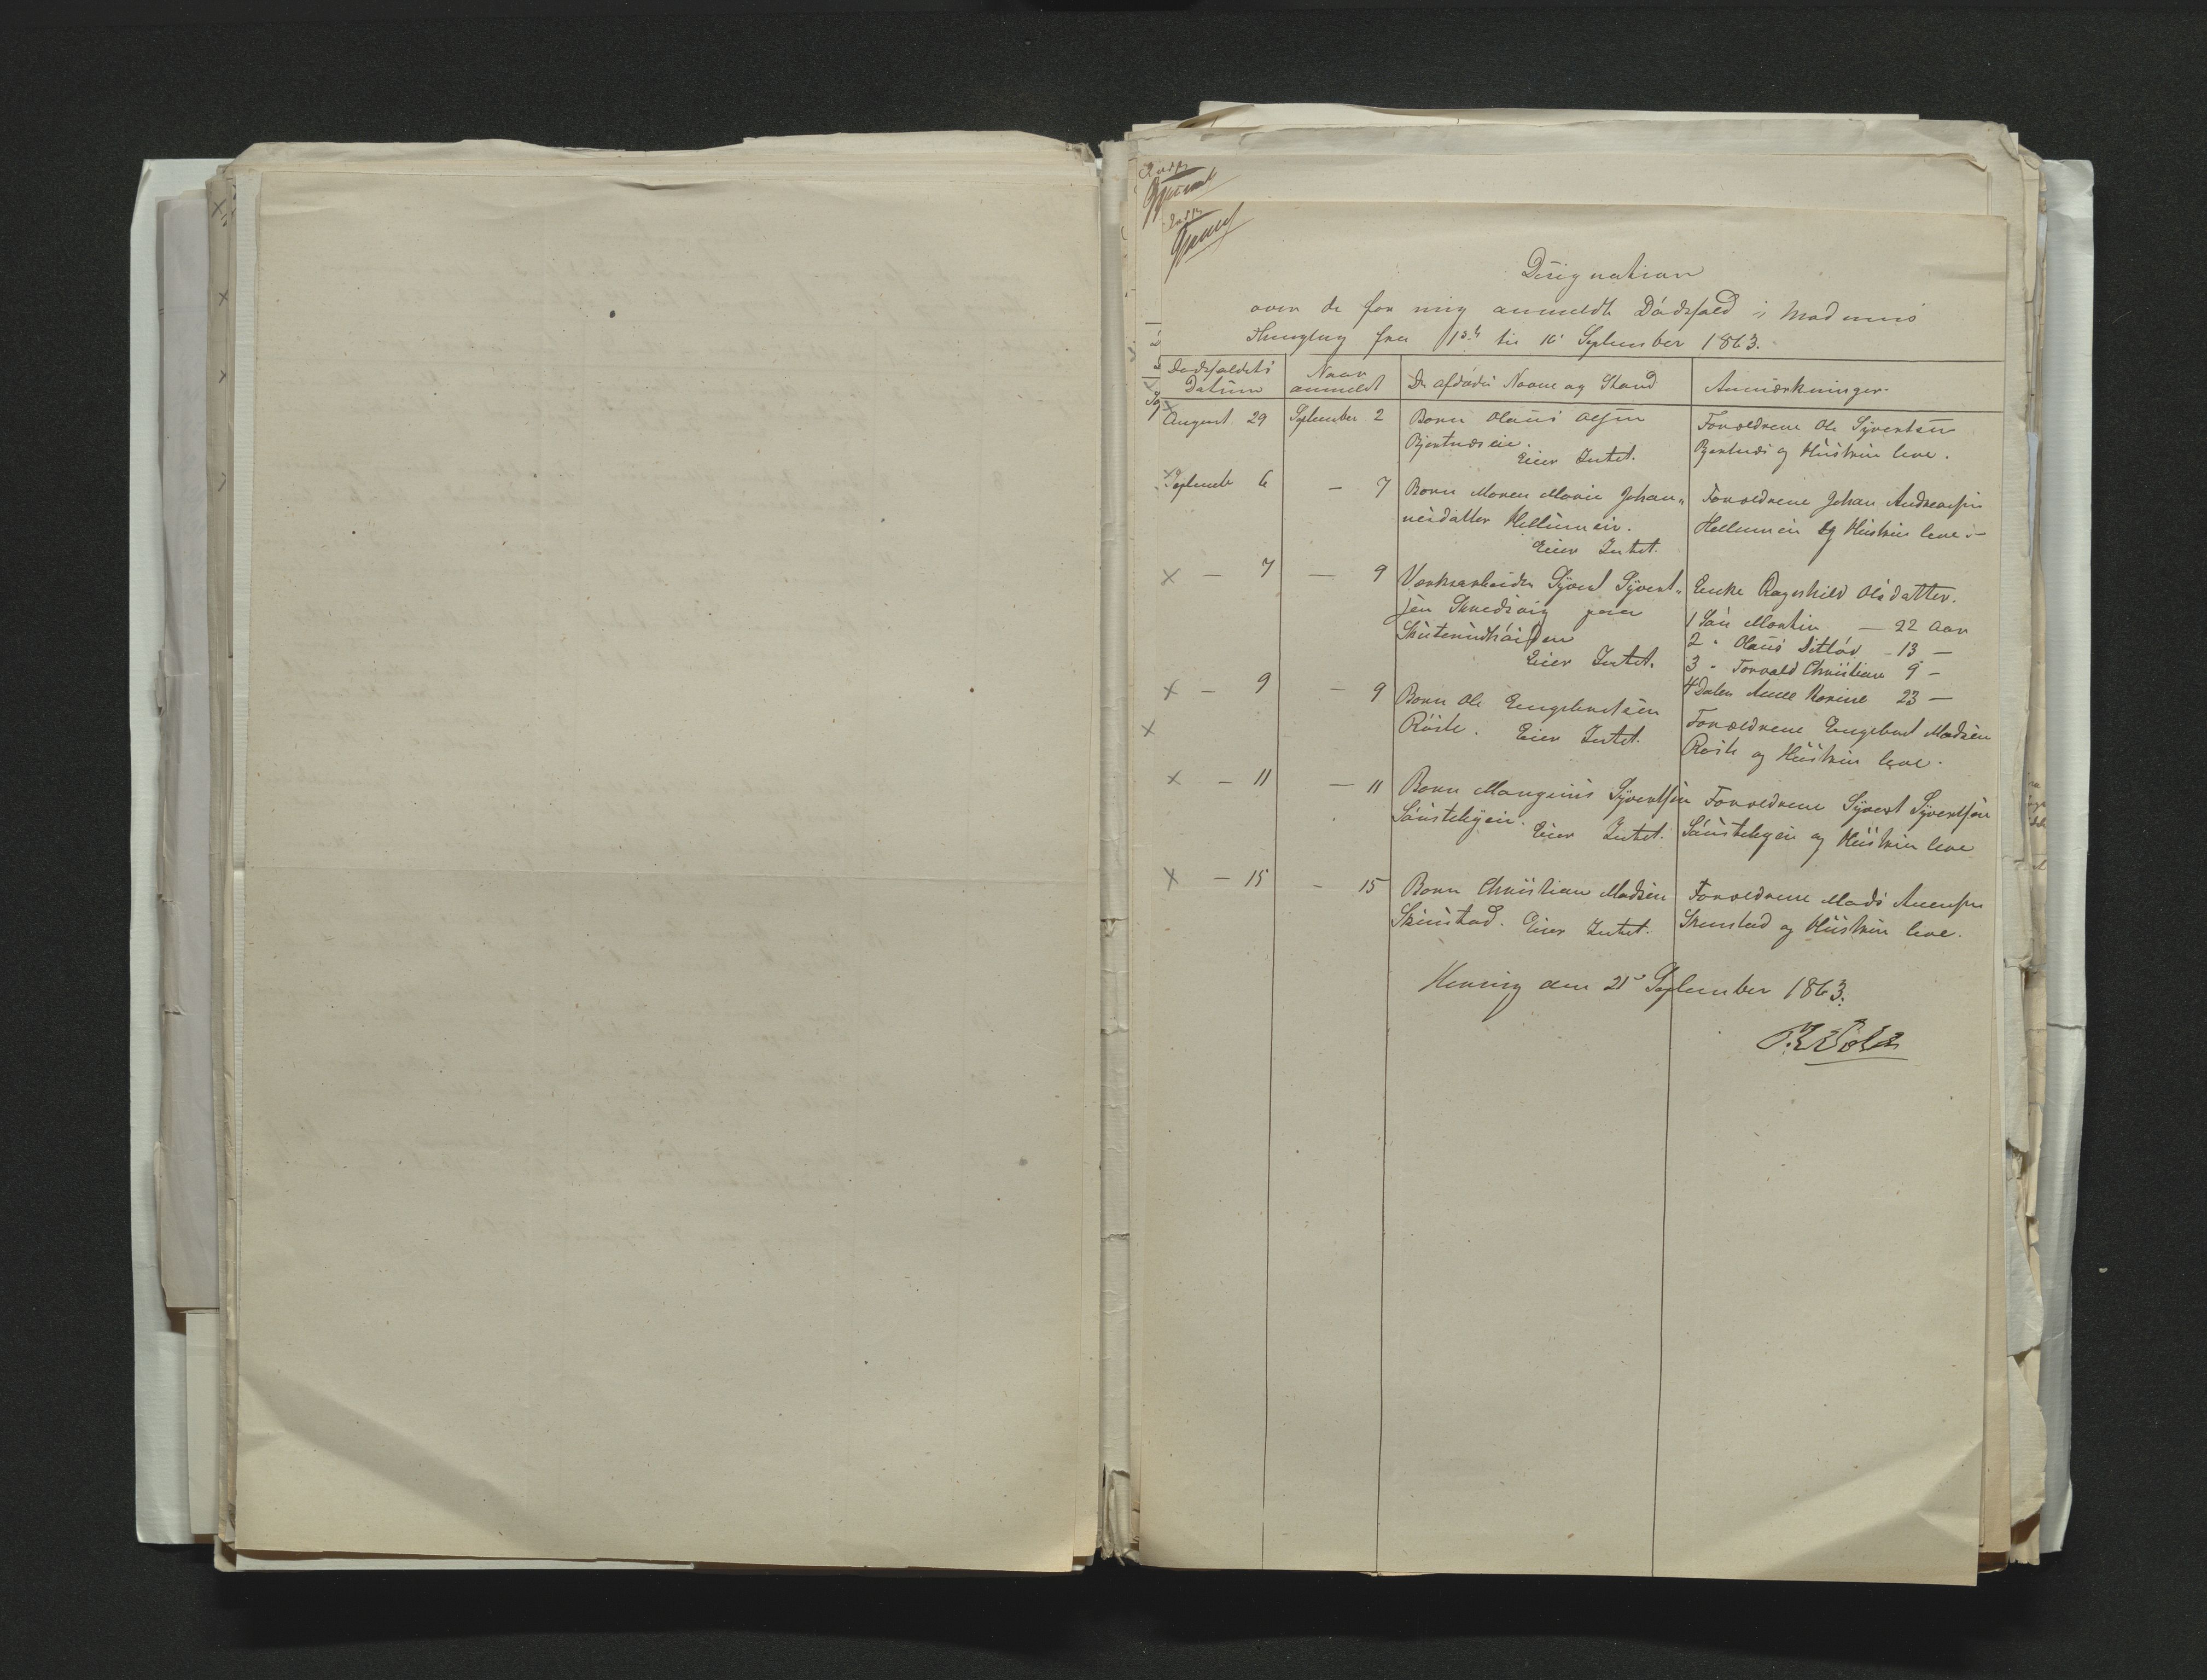 Designation
over de for mig anmeldte Dödsfald i Modums
Thinglag fra 1ste til 16 September 1863.
Dödsfaldets Datum
Naar anmeldt
De afdödes Navne og Stand
Anmærkninger.
August 29 September 2 Barn Olaus Olsen
Bjertnæseie.
Eier Intet.
Forældrene Ole Syvertsen
Bjertnæs og Hustru leve.
September 6 — 7 Barn Maren Marie Johan-
nesdatter Hellumeie.
Eier Intet.
Forældrene Johan Andreasen
Hellumeie og Hustru leve.
× — 7 — 9 Værksarbeider Syvert Syvert-
sen Snedsvig paa
Eier Intet.
Enke Ragnhild Olsdatter.
1 Sön Martin — 22 Aar
2 " Olaus Ditlöv — 13 —
3 " Torvald Christian 9 —
4 Datter Anne Karine 23 —
× — 9 — 9 Barn Ole Engebretsen
Röste. Eier Intet.
Forældrene Engebret Madsen
Röste og Hustru leve.
×
× — 11 — 11 Barn Mangnus Syvertsen
Sönstebyeie.
Eier Intet.
Forældrene Syvert Syvertsen
Sönstebyeie og Hustru leve
× — 15 — 15 Barn Christian Madsen
Skinstad. Eier Intet.
Forældrene Mads Auensen
Skinstad og Hustru leve.
Heuning den 21 September 1863.